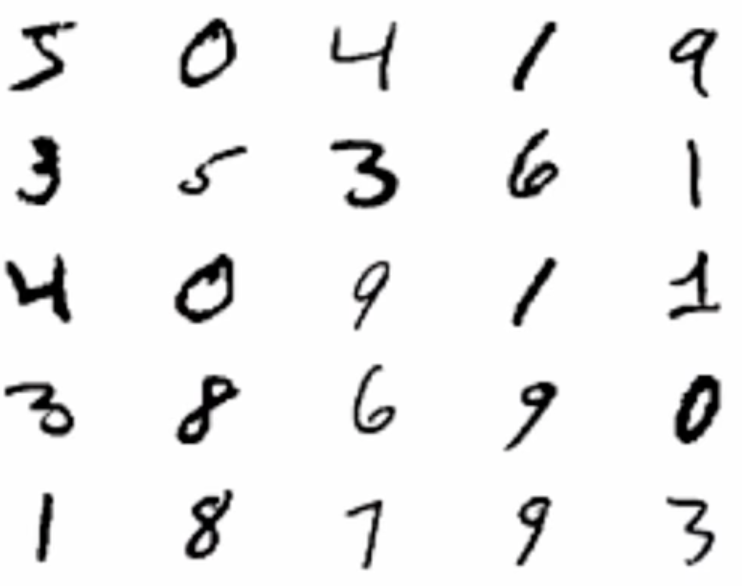 5 0 4 1 9
3 5 3 6 1
4 0 9 1 1
3 8 6 9 0
1 8 7 9 3